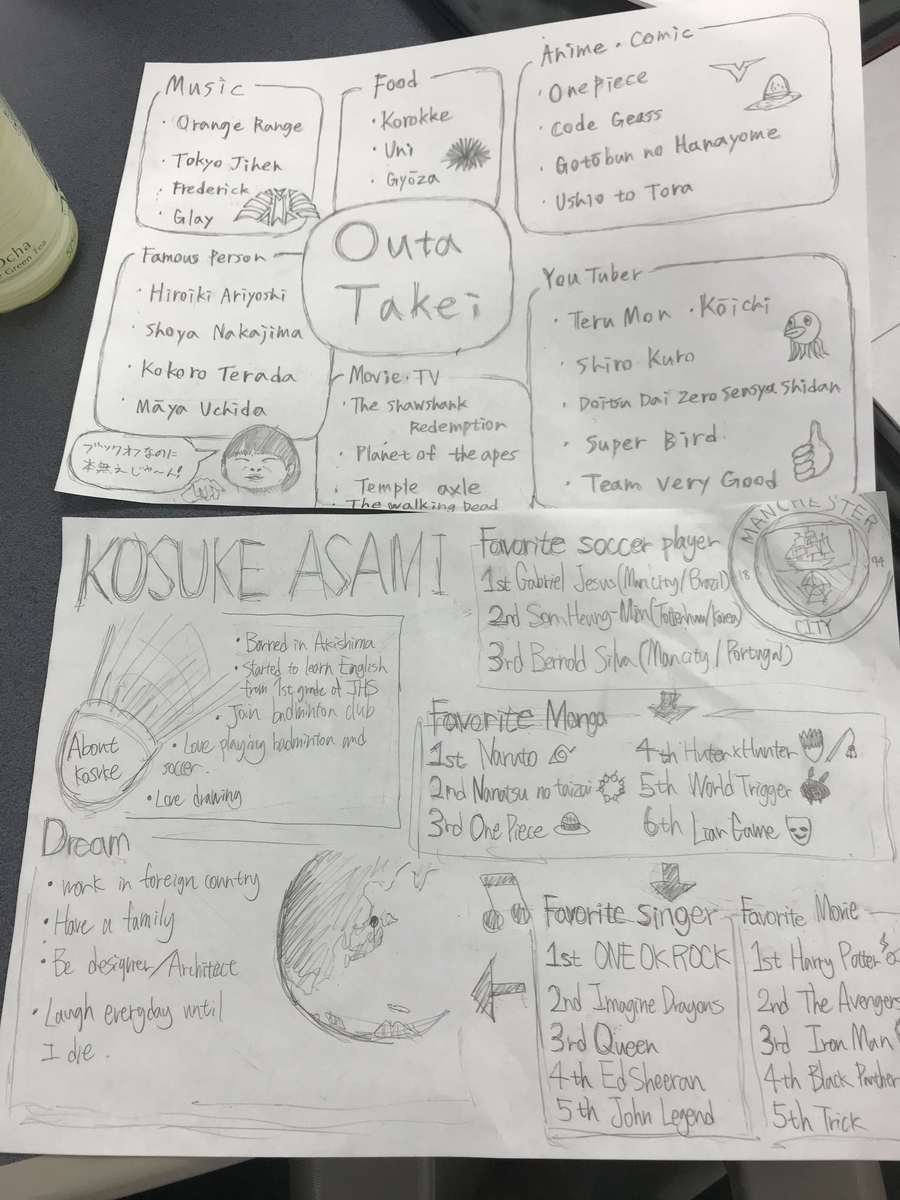 ocha
Green Tea
Music
・Orange Range
・Tokyo Jihen
・Frederick
・Glay
Food
・Korokke
・Uni
・Gyōza
Anime・Comic
・One Piece
・Code Geass
・Gotōbun no Hanayome
・Ushio to Tora
Outa
Takei
Famous Person
・Hiroiki Ariyoshi
・Shoya Nakajima
・Kokoro Terada
・Māya Uchida
ブックオフなのに
本無えじゃーん!
Movie・TV
・The Shawshank
Redemption
・Planet of the apes
・Temple axle
The walking Dead
YouTuber
・Teru Mon ・Kōichi
・Shiro Kuro
・Doitsu Dai Zero Sensya Shidan
・Super Bird
・Team Very Good
KOSUKE ASAMI
About
Kosuke
・Borned in Akishima
・Started to learn English
from 1st grade of JHS
・Join badminton club
・Love playing badminton and
soccer.
・Love drawing
Favorite soccer player
1st Gabriel Jesus (Mancity/Brazil)
2nd Son Heung-Min (Tottenham/Korea)
3rd Bernold Silva (Mancity/Portugal)
MANCHESTER
18 94
CITY
Favorite Manga
1st Naruto
2nd Nanatsu no taizai
3rd One Piece
4th HunterxHunter
5th World Trigger
6th Liar Game
Dream
・work in foreign country
・Have a family
・Be designer/Architect
・Laugh everyday until
I die.
Favorite singer
1st ONE OK ROCK
2nd Imagine Dragons
3rd Queen
4th Ed Sheeran
5th John Legend
Favorite Movie
1st Harry Potter
2nd The Avengers
3rd Iron Man
4th Black Panther
5th Trick